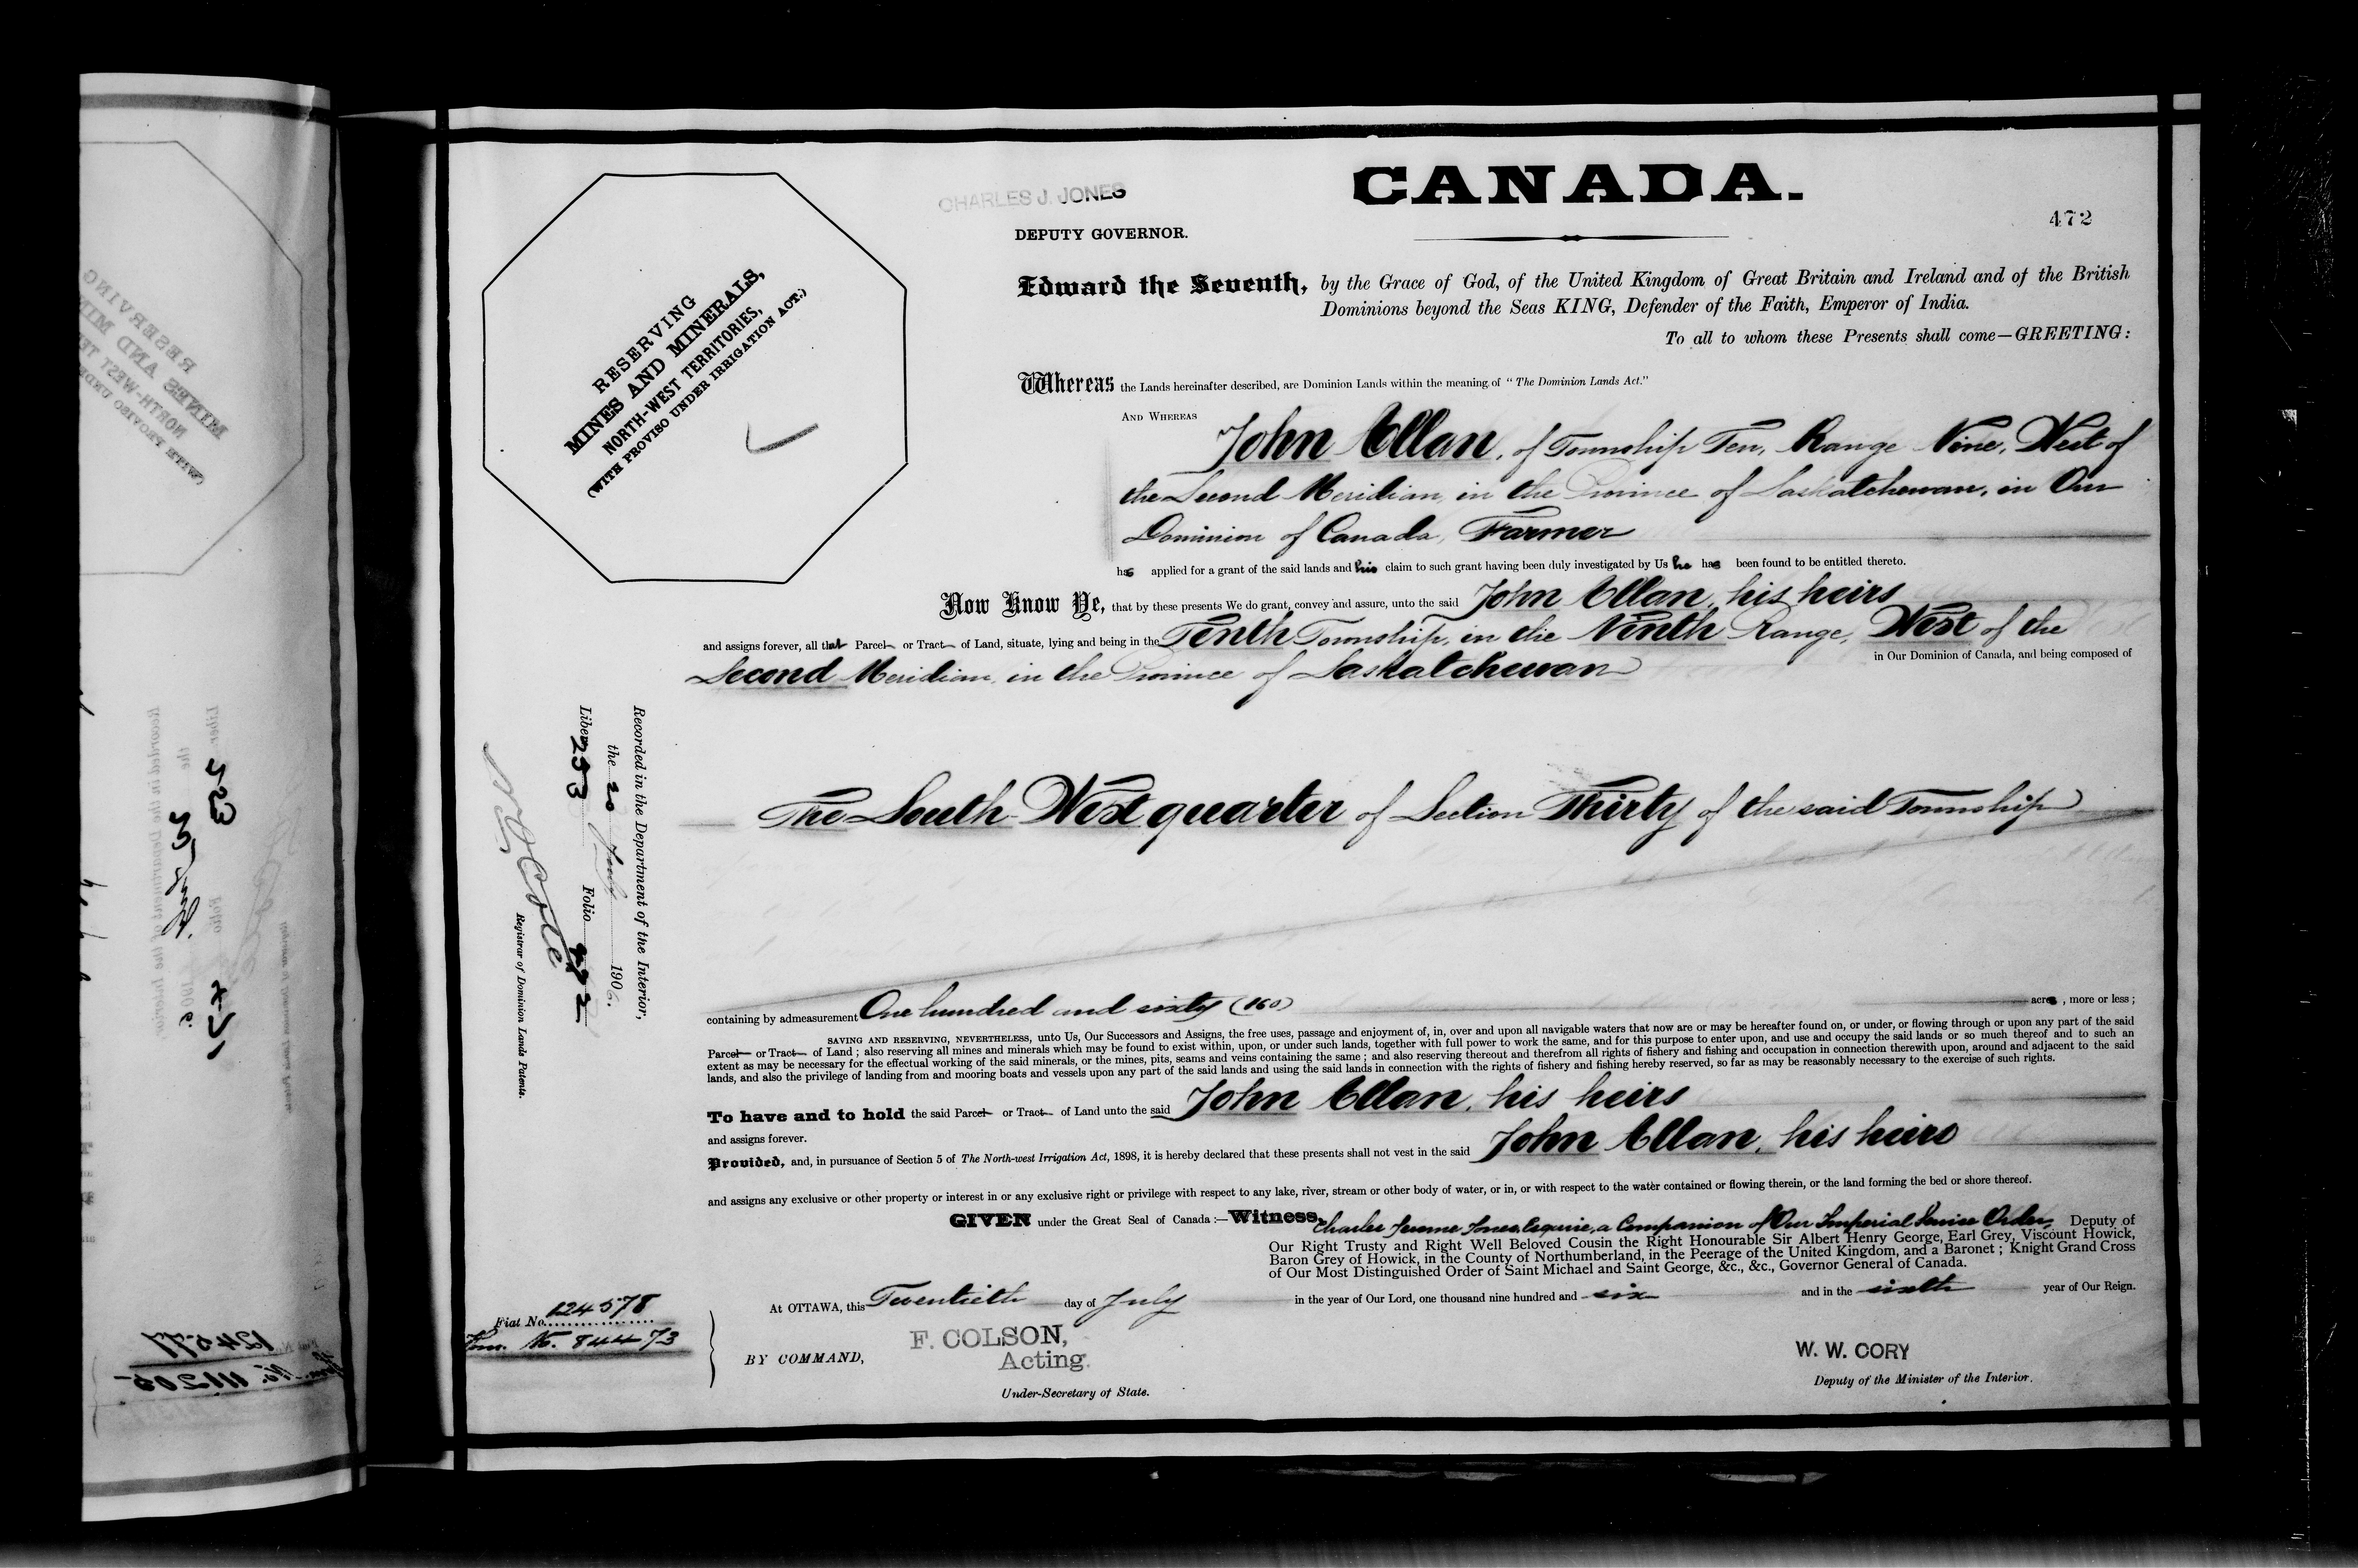 CANADA.
CHARLES J. JONES
472
DEPUTY GOVERNOR.
RESERVING
MINES AND MINERALS,
NORTH-WEST TERRITORIES,
(WITH PROVISO UNDER IRRIGATION ACT.)
Edward the Seventh, by the Grace of God, of the United Kingdom of Great Britain and Ireland and of the British
Dominions beyond the Seas KING, Defender of the Faith, Emperor of India.
To all to whom these Presents shall come—GREETING:
Whereas the Lands hereinafter described, are Dominion Lands within the meaning of "The Dominion Lands Act."
AND WHEREAS
John Allan, of Township Ten, Range Nine, West of
the Second Meridian, in the Province of Saskatchewan, in Our
Dominion of Canada, Farmer
has applied for a grant of the said lands and his claim to such grant having been duly investigated by Us he has been found to be entitled thereto.
Now Know Ye, that by these presents We do grant, convey and assure, unto the said John Allan, his heirs
and assigns forever, all that Parcel or Tract of Land, situate, lying and being in the Tenth Township, in the Ninth Range, West of the
Second Meridian, in the Province of Saskatchewan in Our Dominion of Canada, and being composed of
The South West quarter of Section Thirty of the said Township
Recorded in the Department of the Interior,
the 20 July 1906.
Liber 253 Folio 472
Registrar of Dominion Lands Patents.
containing by admeasurement One hundred and sixty (160) acres, more or less;
SAVING AND RESERVING, NEVERTHELESS, unto Us, Our Successors and Assigns, the free uses, passage and enjoyment of, in, over and upon all navigable waters that now are or may be hereafter found on, or under, or flowing through or upon any part of the said
Parcel or Tract of Land; also reserving all mines and minerals which may be found to exist within, upon, or under such lands, together with full power to work the same, and for this purpose to enter upon, and use and occupy the said lands or so much thereof and to such an
extent as may be necessary for the effectual working of the said minerals, or the mines, pits, seams and veins containing the same; and also reserving thereout and therefrom all rights of fishery and fishing and occupation in connection therewith upon, around and adjacent to the said
lands, and also the privilege of landing from and mooring boats and vessels upon any part of the said lands and using the said lands in connection with the rights of fishery and fishing hereby reserved, so far as may be reasonably necessary to the exercise of such rights.
To have and to hold the said Parcel or Tract of Land unto the said John Allan, his heirs
and assigns forever.
Provided, and, in pursuance of Section 5 of The North-west Irrigation Act, 1898, it is hereby declared that these presents shall not vest in the said John Allan, his heirs
and assigns any exclusive or other property or interest in or any exclusive right or privilege with respect to any lake, river, stream or other body of water, or in, or with respect to the water contained or flowing therein, or the land forming the bed or shore thereof.
GIVEN under the Great Seal of Canada:—Witness, Charles Jerome Jones, Esquire, a Companion of Our Imperial Service Order, Deputy of
Our Right Trusty and Right Well Beloved Cousin the Right Honourable Sir Albert Henry George, Earl Grey, Viscount Howick,
Baron Grey of Howick, in the County of Northumberland, in the Peerage of the United Kingdom, and a Baronet; Knight Grand Cross
of Our Most Distinguished Order of Saint Michael and Saint George, &c., &c., Governor General of Canada.
At OTTAWA, this Twentieth day of July in the year of Our Lord, one thousand nine hundred and six and in the sixth year of Our Reign.
Fiat No. 124578
Hom. No. 84473
BY COMMAND,
F. COLSON,
Acting.
Under-Secretary of State.
W. W. CORY
Deputy of the Minister of the Interior.